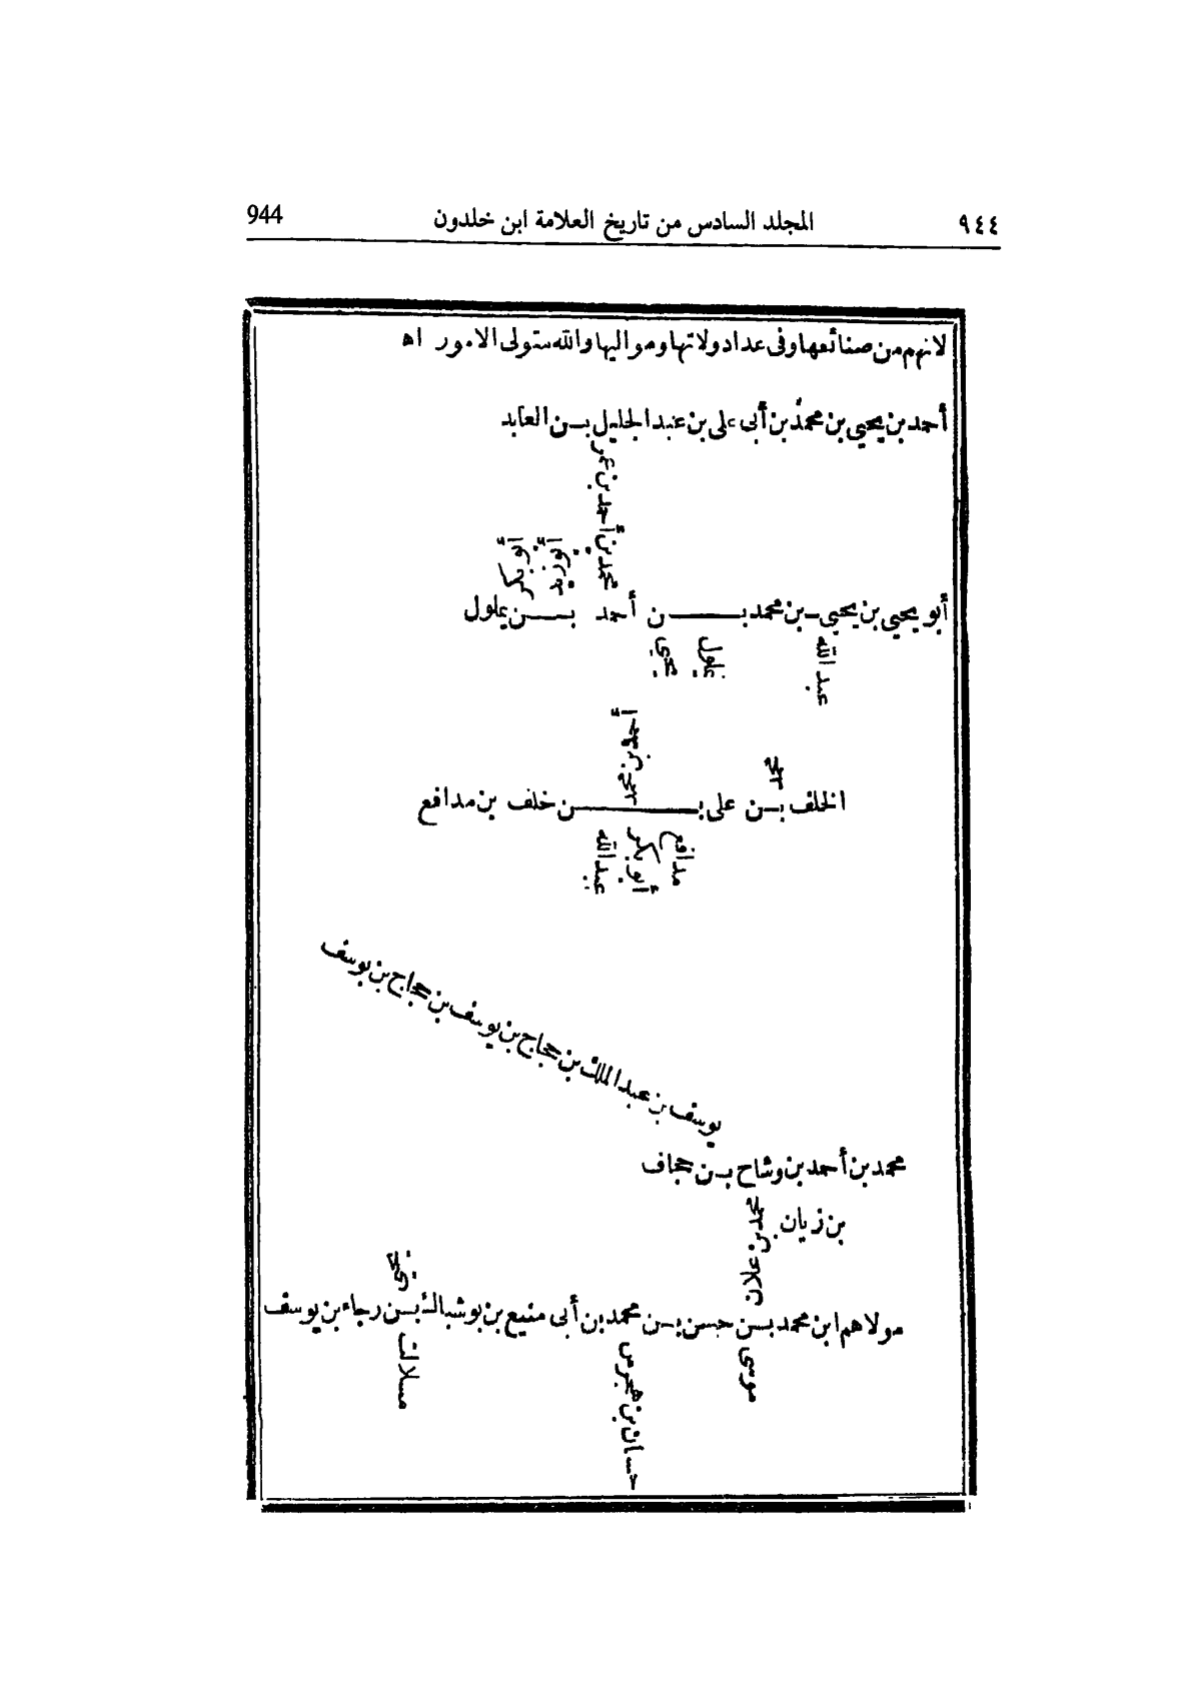 ٩٤٤ المجلد السادس من تاريخ العلامة ابن خلدون 944
لانهم من صنائعها وفى عداد ولاتها ومواليها والله متولى الامور اه
أحمد بن يحيى بن محمد بن أبى على بن عبد الجليل بن العابد
محمد بن أحمد بن عمر
أبو زيد
أبو بكر
أبو يحيى بن يحيى بن محمد بن أحمد بن يملول
عبد الله
يملول
يحيى
أحمد بن محمد
الخلف بن على بن خلف بن مدافع
مدافع
أبو بكر
عبد الله
يوسف بن عبد الملك بن حجاج بن يوسف بن حجاج بن يوسف
محمد بن أحمد بن وشاح بن حجاف
بن زيان
محمد بن علان
مولاهم ابن محمد بن حسن بن محمد بن أبى منيع بن بوشباك بن رجاء بن يوسف
موسى
حسان بن هجرس
مسلات